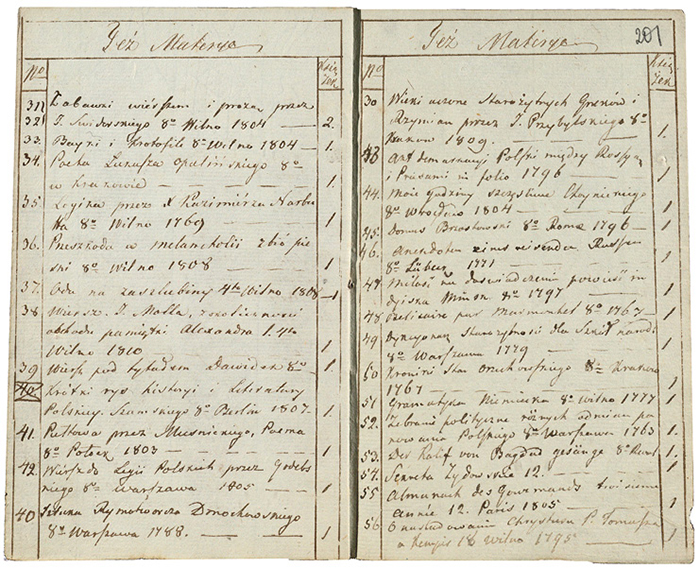 Też Materye
No Księ Żek
31 Zabawki wierszem i prozą przez
32 J. Swidorskiego 8o Wilno 1804 — 2.
33. Bayki i Krotofile 8o Wilno 1804 — 1.
34. Poeta Łukasza Opalińskiego 8o
w Krakowie — 1.
35. Logika przez X Kazimierza Narbu
ta 8o Wilno 1769 — 1
36. Przeszkoda w melancholii zbiór pie
sni 8o Wilno 1808 — 1
37. Oda na zaszlubiny 4to Wilno 1808 — 1
38 Wiersz J. Molla, z okoliczności
obchodu pamiątki Alexandra I. 4to
Wilno 1810 — 1
39 Wiersz pod tytułem Dawidek 8o — 1
40 Krótki rys historyi i Literatury
Polskiey Szumskiego 8o Berlin 1807 — 1
41. Pułtowa przez Muśnickiego, Poema
8o Połock 1803 — 1
42. Wiersz do Legii Polskich przez Godebs
kiego 8o Warszawa 1805 — 1
40 Sztuka Rymotworcza Dmochowskiego
8o Warszawa 1788. — 1
Też Materye 201
No Księ Żek
30 Wieki uczone Starożytnych Greków i
Rzymian przez J. Przybylskiego 8o
Krakow 1809. 1.
43 Akt demarkacyi Polski między Rossyą
i Prusami in folio 1796 — 1
44. Moie godziny szczęśliwe Choynickiego
8o Wrocław 1804 — 1
45. Domus Brzostowski 8o Romae 1796 — 1
46. Anekdoten Russen
8o Lübeck 1771 1
47 Miłość na doswiadczeniu powieść in
dyiska Mińsk. 8o 1797 — 1
48 Belisaire par Marmontel 8o 1767 — 1
49 Dykcyonarz Starożytności dla Szkół narod.
8o Warszawa 1779 — 1
50 Kroniki Stan. Orzechowskiego 8o Krakow
1767 — 1
51 Gramatyka Niemiecka 8o Wilno 1777 1
52. Zebranie polityczne różnych odmian pa
nowania Polskiego 8o Warszawa 1763 1
53. Der Kalif von Bagdad gesänge 8o 1
54. Sekreta Żydowskie 12. — 1
55 Almanach des Gourmands troisieme
année 12. Paris 1805 — 1
56 O nasladowaniu Chrystusa P. Tomasza
a Kempis 18 Wilno 1795 — 1